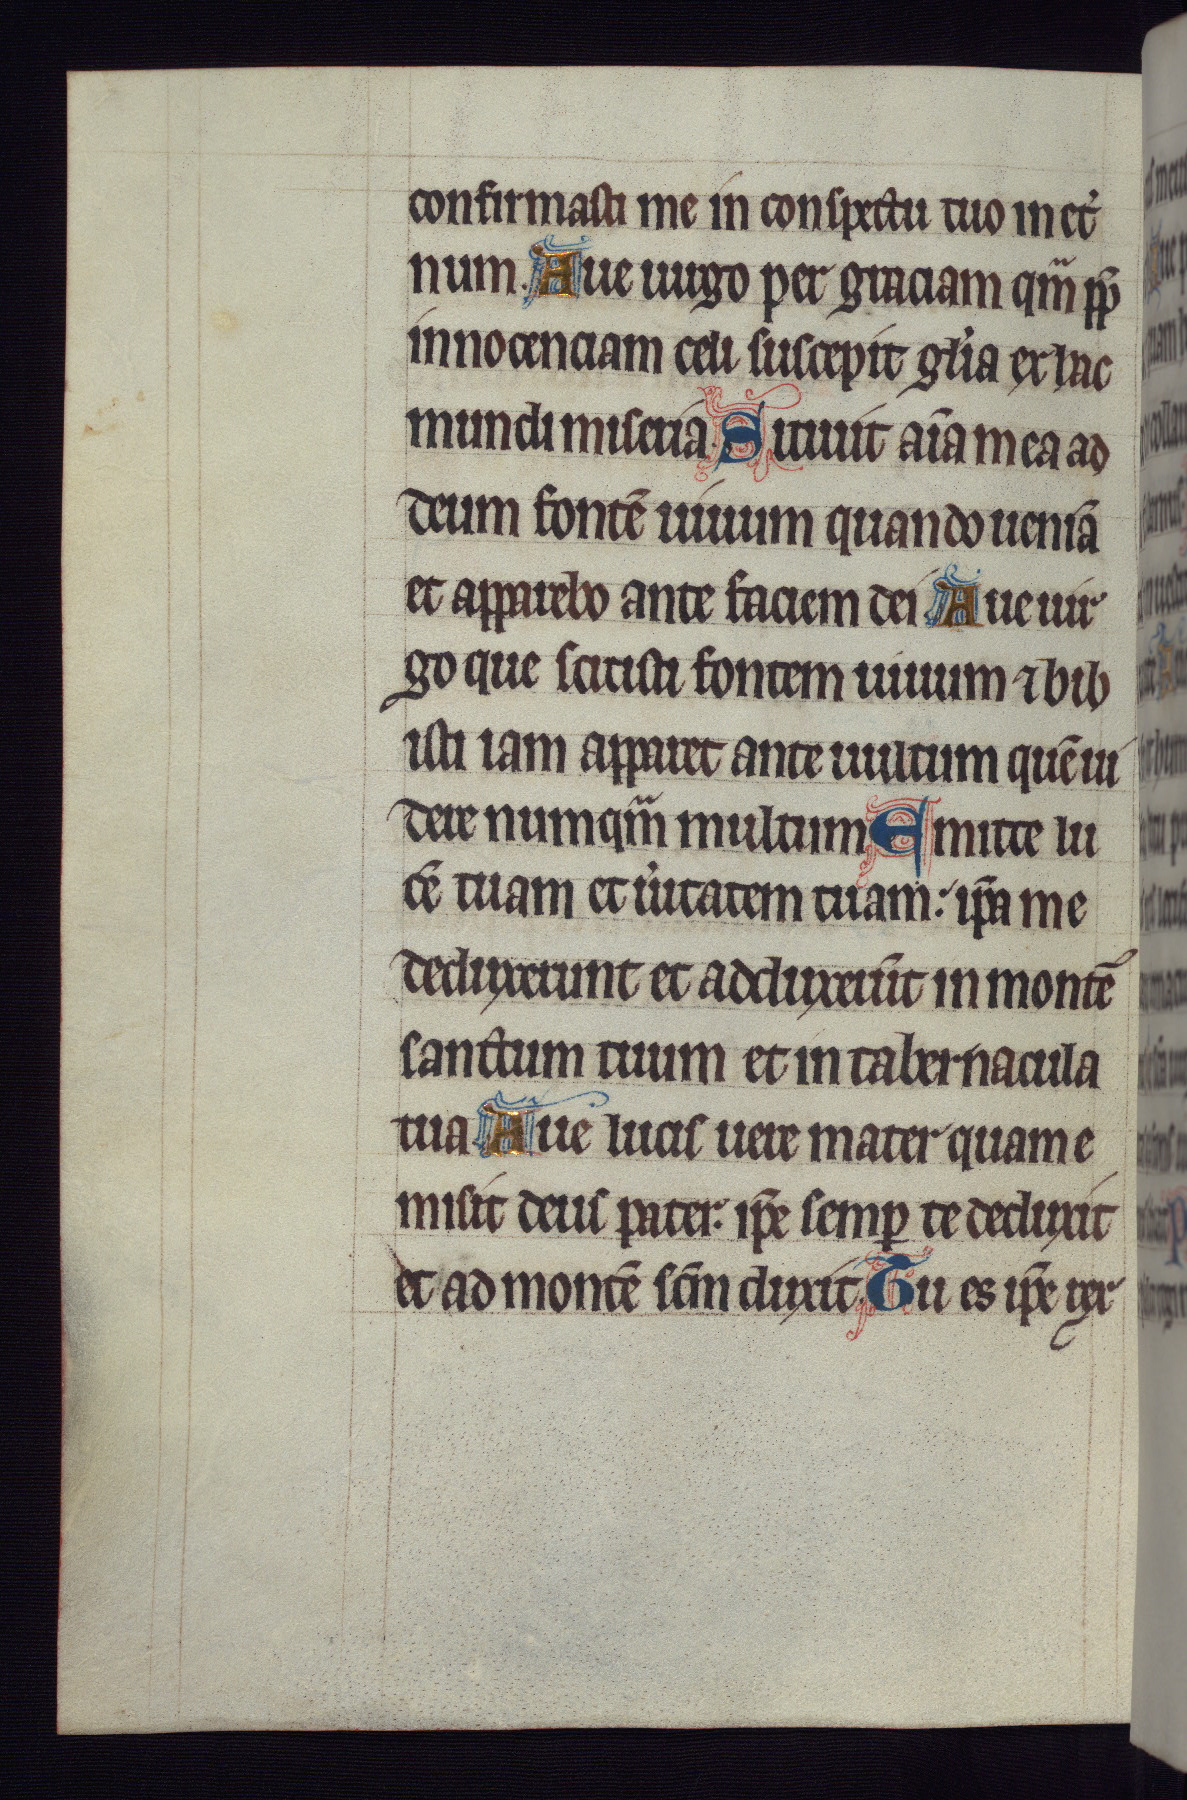 confirmasti me in conspectu tuo in et̾
num. Aue uirgo per graciam qͫ ꝓp̄
innocenciam celi suscepit gl̾ia ex hac
mundi miseria. Sitiuit aīa mea ad
deum fontē uiuum quando ueniā
et apparebo ante faciem dei. Aue uir
go que scitisti fontem uiuum ⁊ bib
isti iam apparet ante uultum quē ui
dere numqͫ multum. Emitte lu
cē tuam et u̾itatem tuam: ip̄a me
deduxerunt et adduxerūt in montē
sanctum tuum et in tabernacula
tua Aue lucis uere mater quam e
misit deus pater. ip̄e semꝑ te deduxit
et ad montē sc̄m duxit. Tu es ip̄e rex